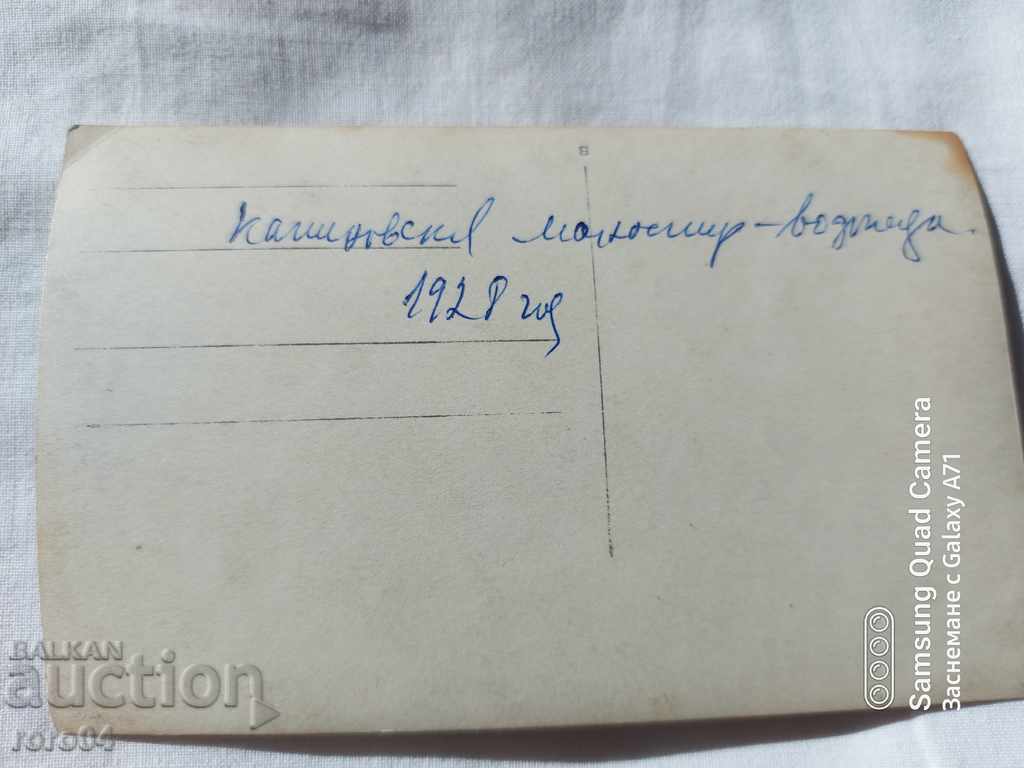 в
Капиновскя манастир - водопада.
1928 год
BALKAN
auction
roro04
Samsung Quad Camera
Заснемане с Galaxy A71